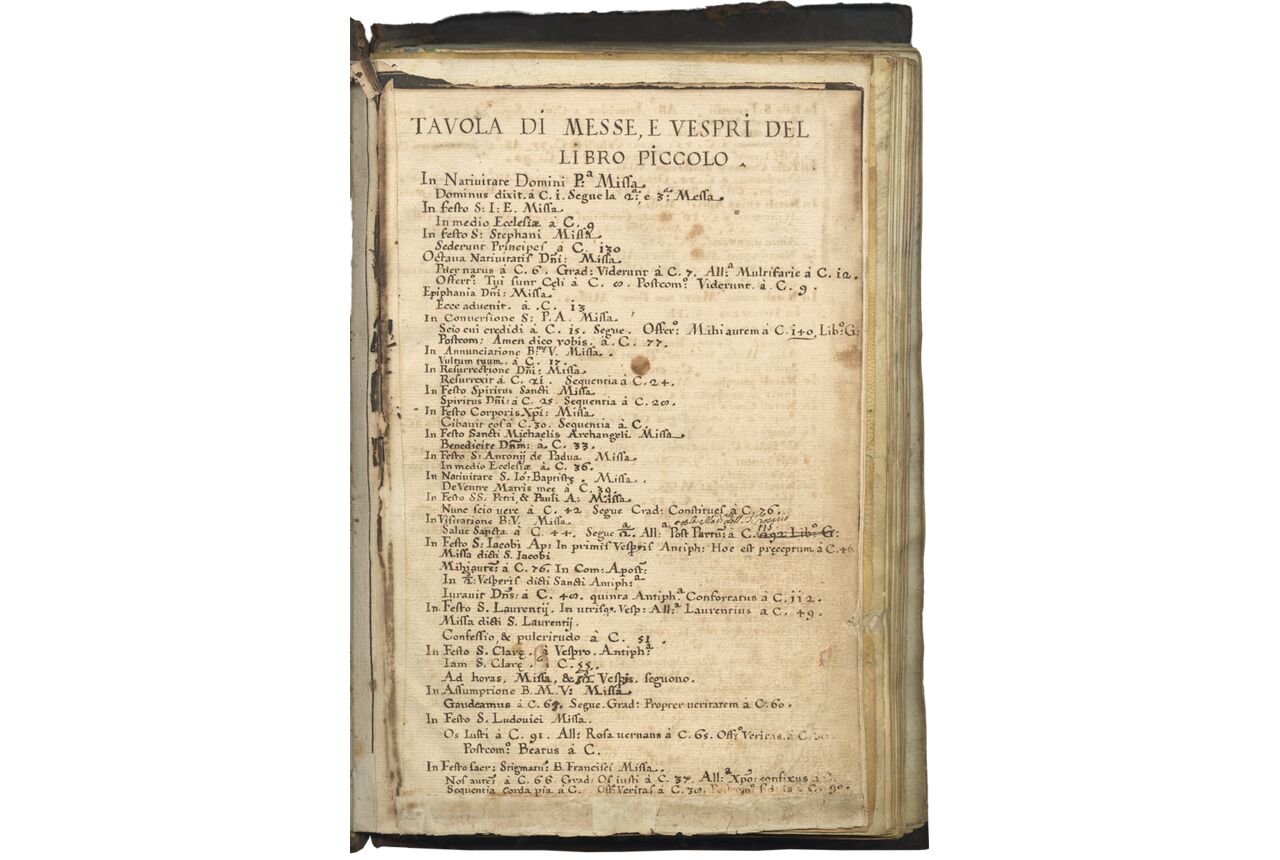 TAVOLA DI MESSE, E VESPRI DEL
LIBRO PICCOLO.
In Nativitate Domini P.ª Missa
Dominus dixit. à C. 1. Segue la 2.ª: e 3.ª Messa
In festo S: I: E. Missa
In medio Ecclesiæ à C. 9
In festo S: Stephani Missa
Sederunt Principes à C. 130
Octava Nativitatis Dñi: Missa
Puer natus à C. 6. Grad: Viderunt à C. 7. All:ª Multifarie à C. 12.
Offert: Tui sunt Cęli à C. 8. Postcom: Viderunt. à C. 9.
Epiphania Dñi: Missa
Ecce advenit. à .C. 13
In Conversione S: P. A. Missa.
Scio cui credidi à C. 15. Segue. Offer: Mihi autem à C. 140. Lib:º G:
Postcom: Amen dico vobis. à. C. 77.
In Annunciatione B:ᵐᵉ V. Missa.
Vultum tuum. à C. 17.
In Resurrectione Dñi: Missa
Resurrexit à C. 21. Sequentia à C. 24.
In Festo Spiritus Sancti Missa
Spiritus Dñi: à C. 25. Sequentia à C. 28.
In Festo Corporis Xp̃i: Missa
Cibavit eos à C. 30. Sequentia à C.
In Festo Sancti Michaelis Archangeli Missa
Benedicite Dñm: à C. 33.
In Festo S: Antonij de Padua Missa
In medio Ecclesiæ à C. 36.
In Nativitate S. Io: Baptistę. Missa.
De Ventre Matris meę à C. 39.
In Festo SS. Petri, & Pauli A: Missa
Nunc scio vere à C. 42 Segue Grad: Constitues à C. 76.
In Visitatione B: V. Missa
Salve Sancta à C. 44. Segue 2.ª All:ª Post Partũ: à C. 192 Lib:º G:
In Festo S: Iacobi Ap: In primis Vespris Antiph: Hoc est pręceptum à C. 46
Missa dicti S. Iacobi
Mihi autẽ: à C. 76. In Com: Apost:
In 2: Vesperis dicti Sancti Antiph:ª
Iuravit Dñs: à C. 48. quinta Antiph.ª Confortatus à C. 112.
In Festo S. Laurentij. In utrisq. Vesp: All:ª Laurentius à C. 49.
Missa dicti S. Laurentij.
Confessio, & pulcritudo à C. 51.
In Festo S. Clarę. à Vespro. Antiph:ª
Iam S. Clarę. à C. 55.
Ad horas, Missa, & 2: Vespis. seguono.
In Assumptione B. M. V: Missa
Gaudeamus à C. Segue. Grad: Propter veritatem à C. 60.
In Festo S. Ludovici Missa.
Os Iusti à C. 91. All: Rosa vernans à C. 65. Off:º Veritas. à C.
Postcom: Beatus à C.
In Festo sacr: Stigmatũ: B. Francisci Missa.
Nos autẽ: à C. 66. Grad: Os iusti à C. 37. All:ª Xp̃o: confixus à C.
Sequentia corda pia à C. Off: Veritas à C. 38. C. 90.